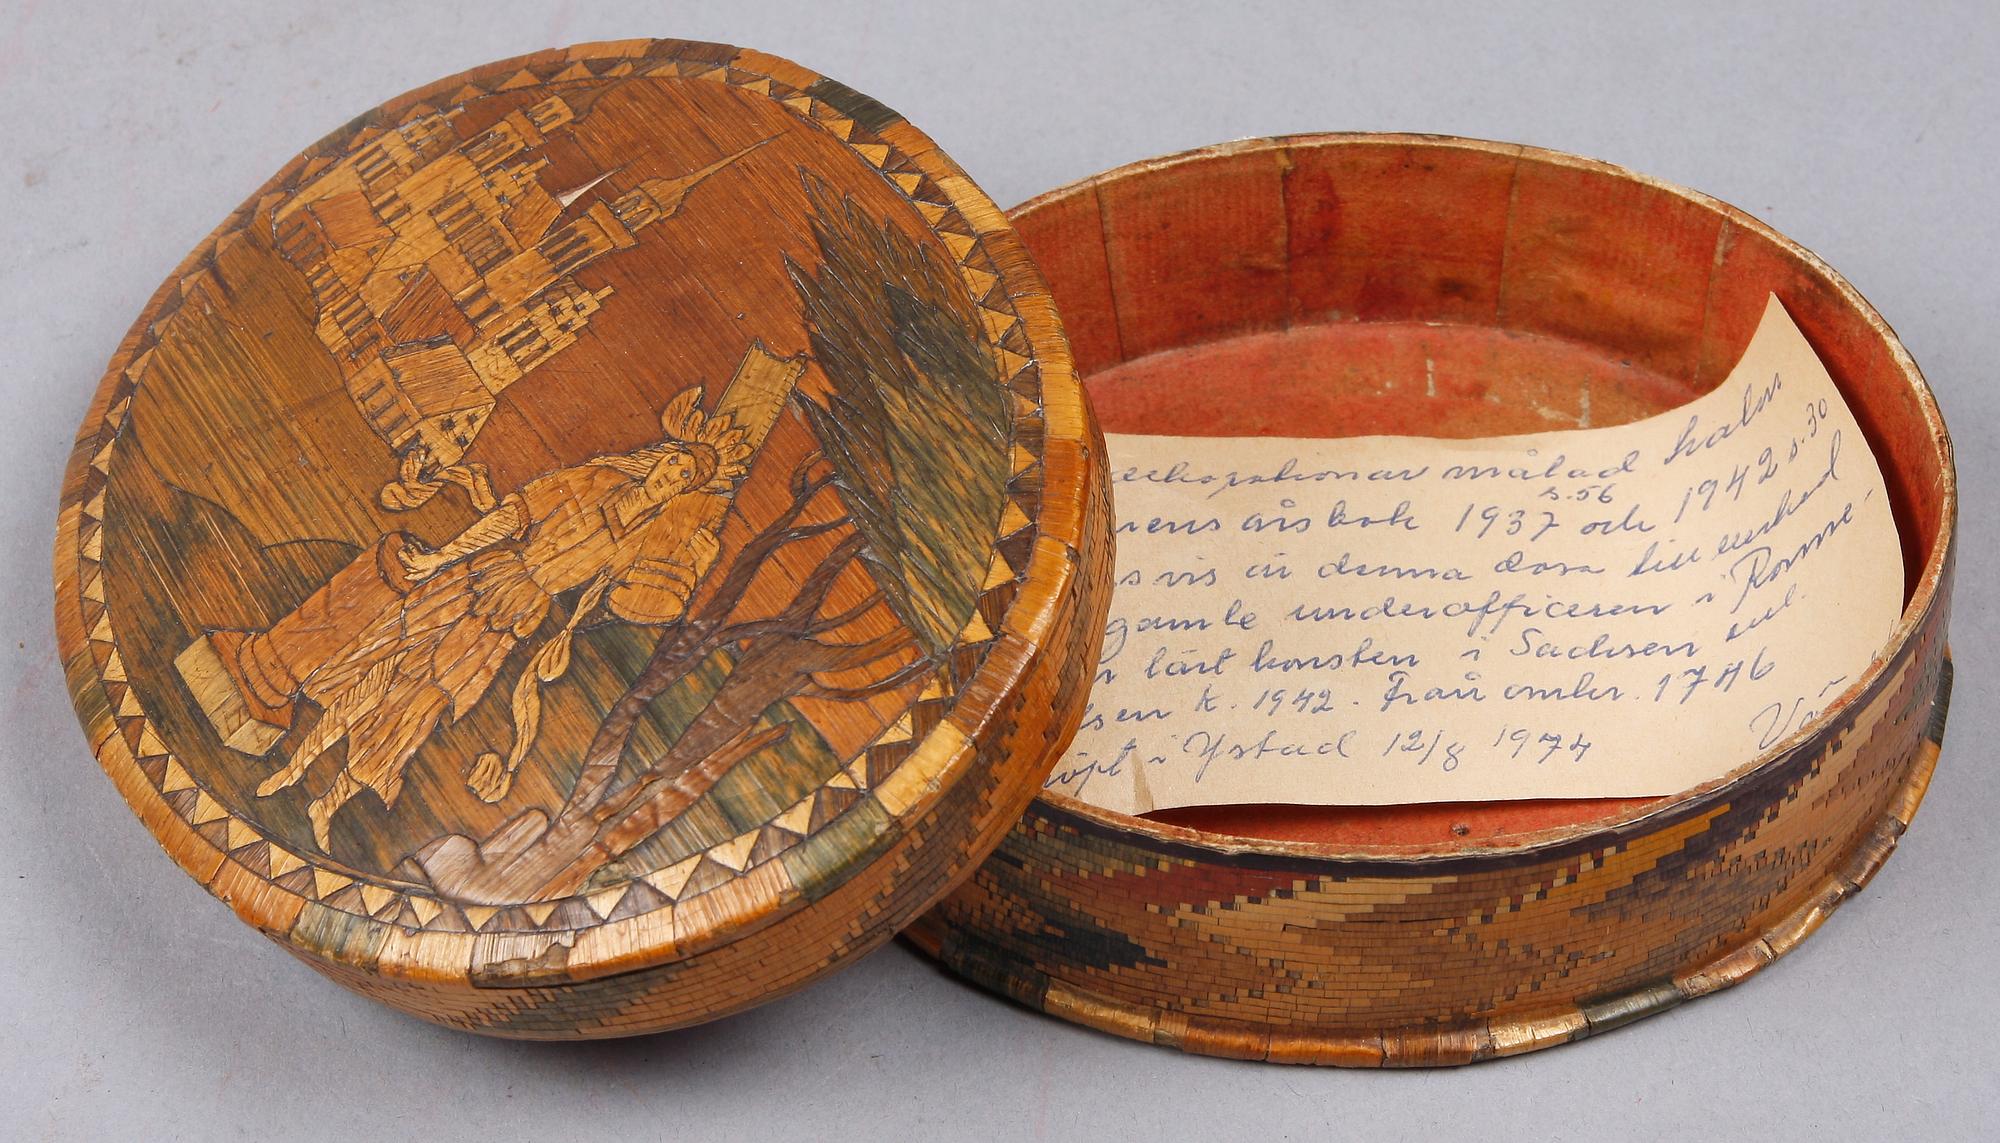 målad halm
s. 56
rens årsbok 1937 och 1942 s. 30
s vis är denna dosa tillverkad
gamle underofficeren i Romme
r lärt konsten i Sachsen
sen k. 1942. Från omkr. 1746
köpt i Ystad 12/8 1974